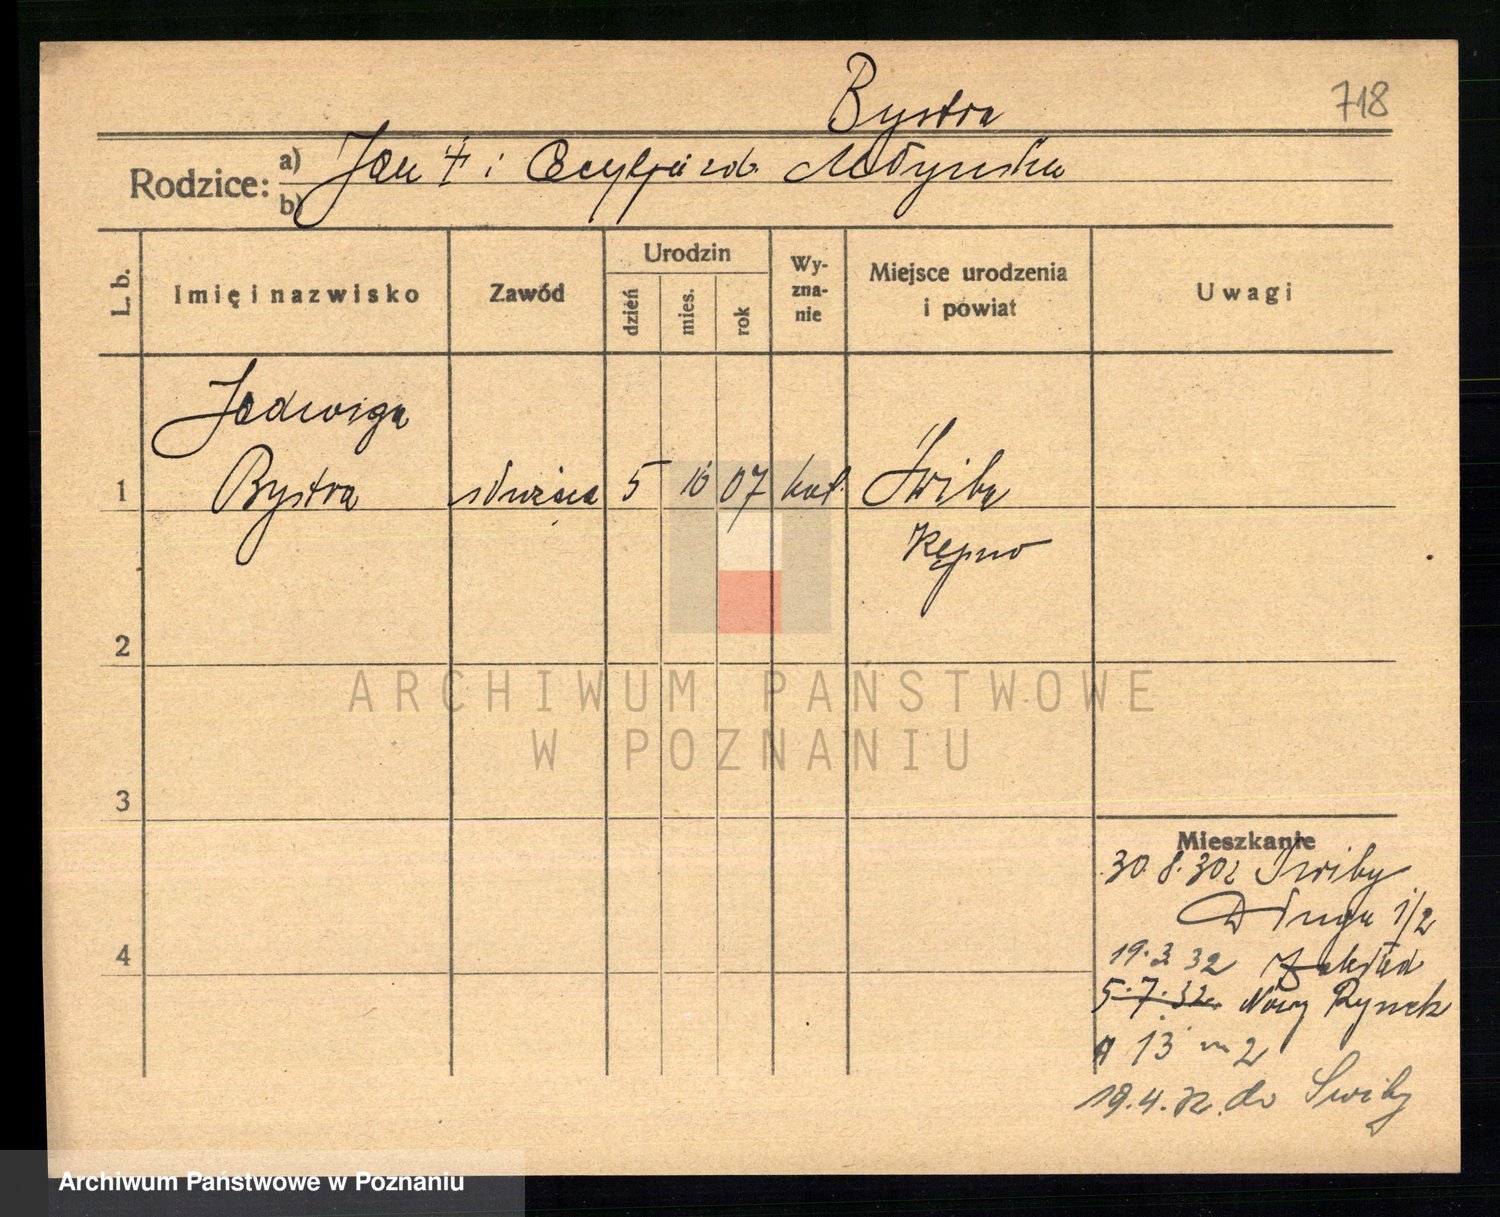 Bystra
718
Rodzice: a) Jan † i Cecylja zd. Młyńska
b)
L. b.
Imię i nazwisko
Zawód
Urodzin
dzień
mies.
rok
Wy-
zna-
nie
Miejsce urodzenia
i powiat
Uwagi
Jadwiga
1 Bystra służąca 5 10 07 kat. Świba
Kępno
2
ARCHIWUM PAŃSTWOWE
W POZNANIU
3
Mieszkanie
30.8.30 z Świby
Długa 1/2
4
19.3 32 Zakład
5.7.32 Nowy Rynek
13 m 2
19.4.32. do Świby
Archiwum Państwowe w Poznaniu